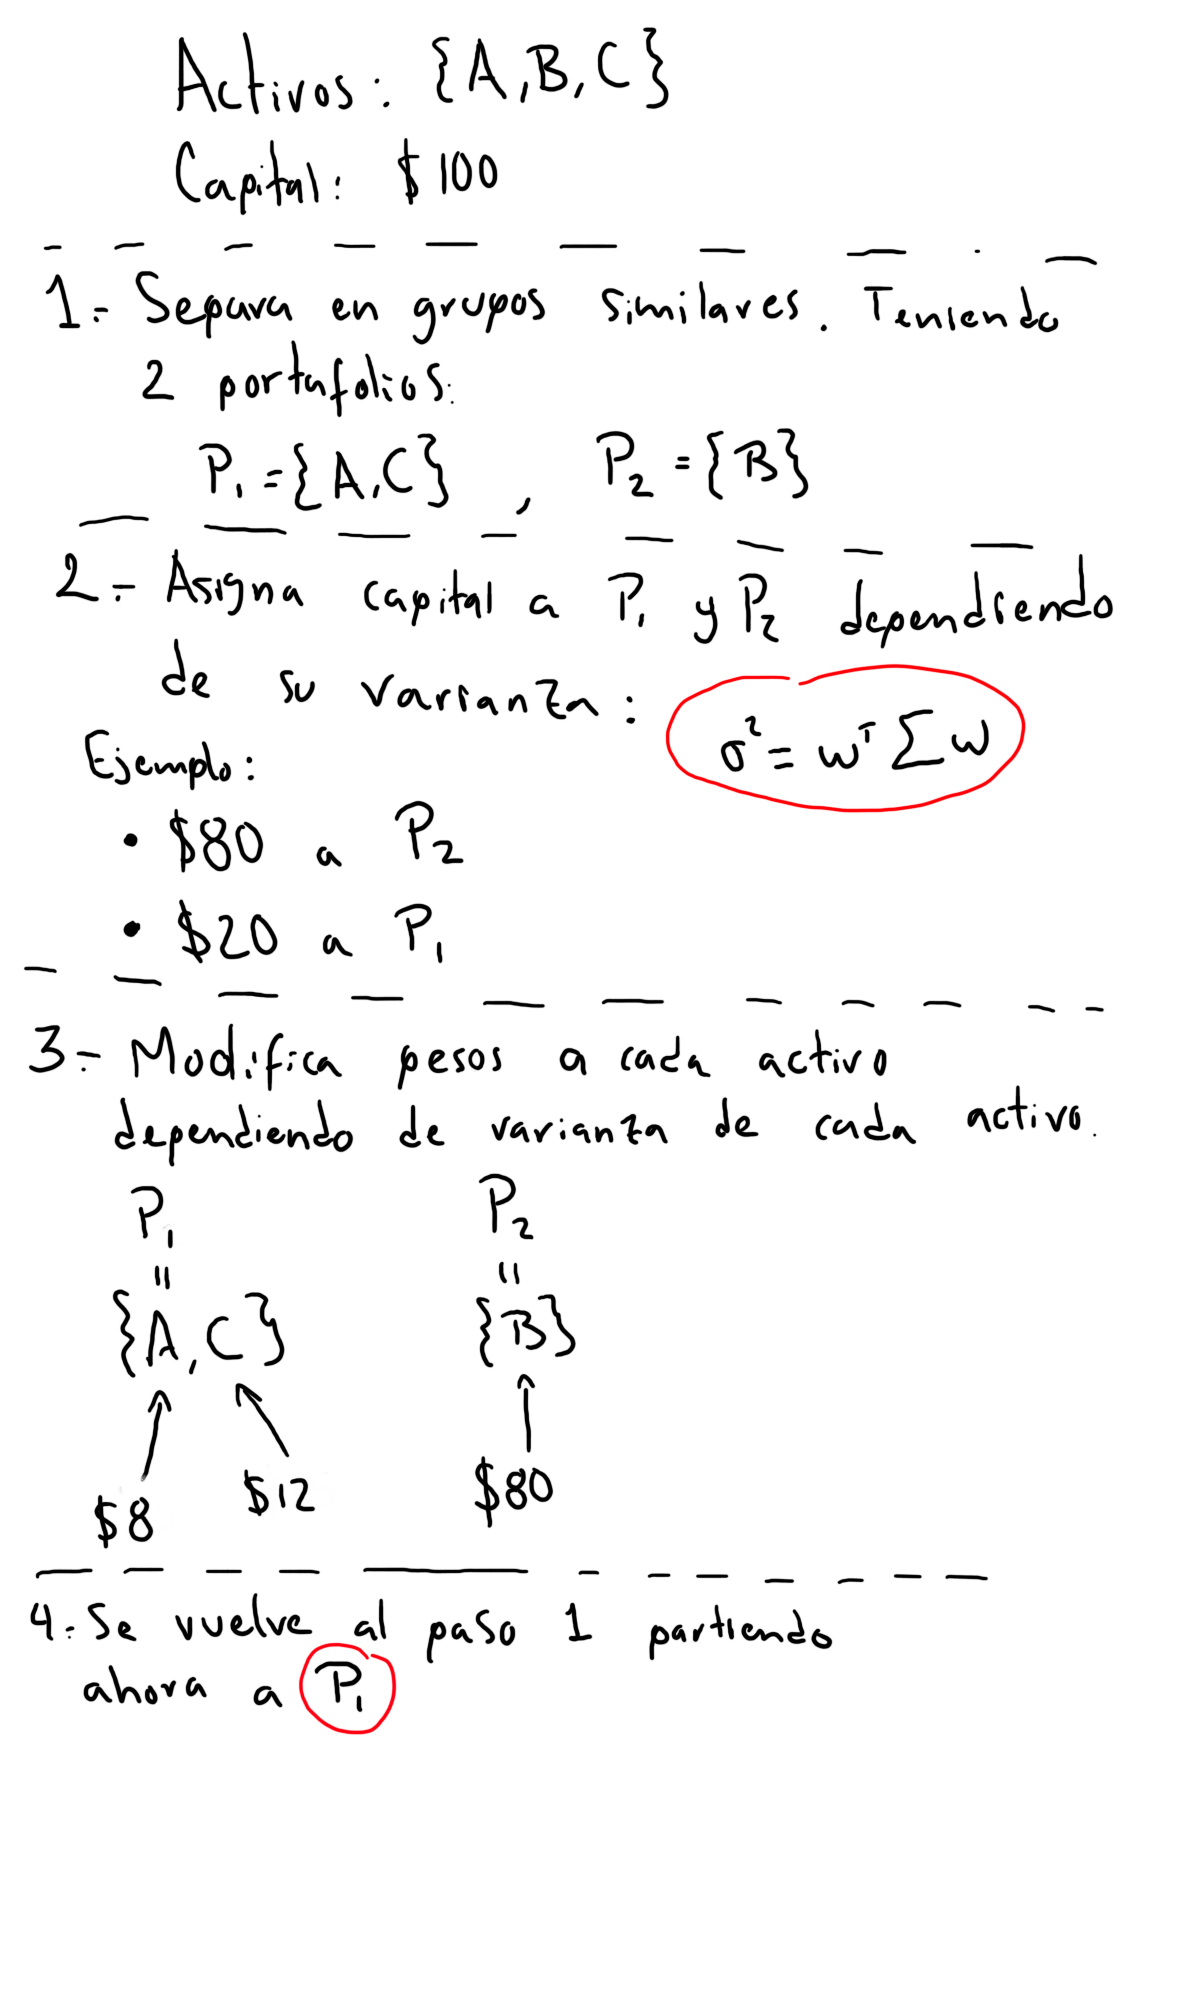 Activos: {A,B,C}
Capital: $100
1.- Separa en grupos similares. Teniendo
2 portafolios:
P₁={A,C} , P₂={B}
2.- Asigna capital a P₁ y P₂ dependiendo
de su varianza: σ²=wᵀΣw
Ejemplo:
• $80 a P₂
• $20 a P₁
3.- Modifica pesos a cada activo
dependiendo de varianza de cada activo.
P₁ P₂
= =
{A,C} {B}
$8 $12 $80
4.- Se vuelve al paso 1 partiendo
ahora a P₁